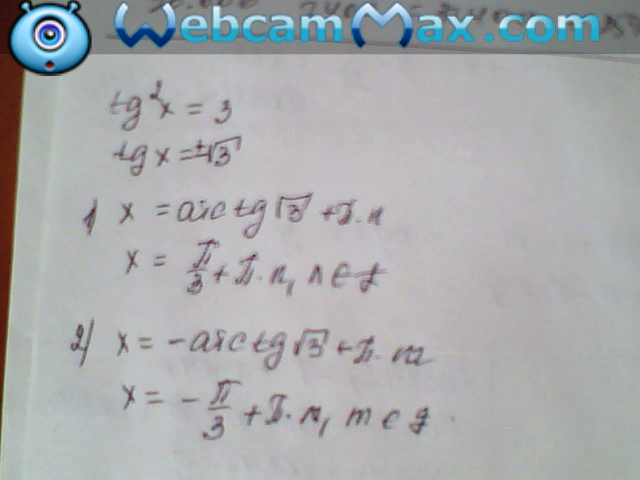 WebcamMax.com
tg²x = 3
tg x = ±√3
1) x = arctg √3 + π·n
x = π/3 + π·n, n ∈ Z
2) x = -arctg √3 + π·m
x = -π/3 + π·n, m ∈ Z